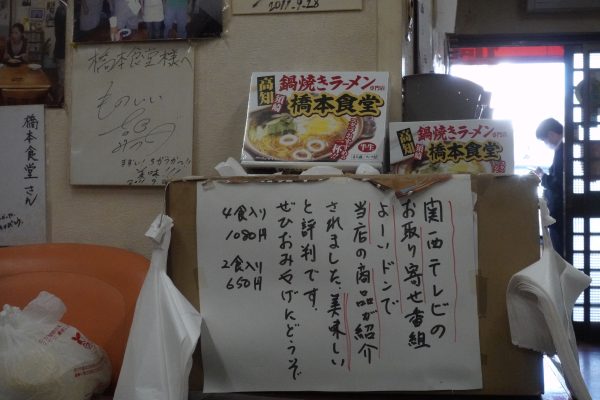 2011-9-28
橋本食堂様へ
ものいい
まずい!ちがうがっ!!
美味!!!
橋本食堂さん
高知
須崎
鍋焼きラーメン
専門店
橋本食堂
半生
高知
鍋焼きラーメン
専門店
橋本食堂
関西テレビの
お取り寄せ番組
よーいドンで
当店の商品が紹介
されました、美味しい
と評判です.
ぜひおみやげにどうぞ
4食入り
1080円
2食入り
650円